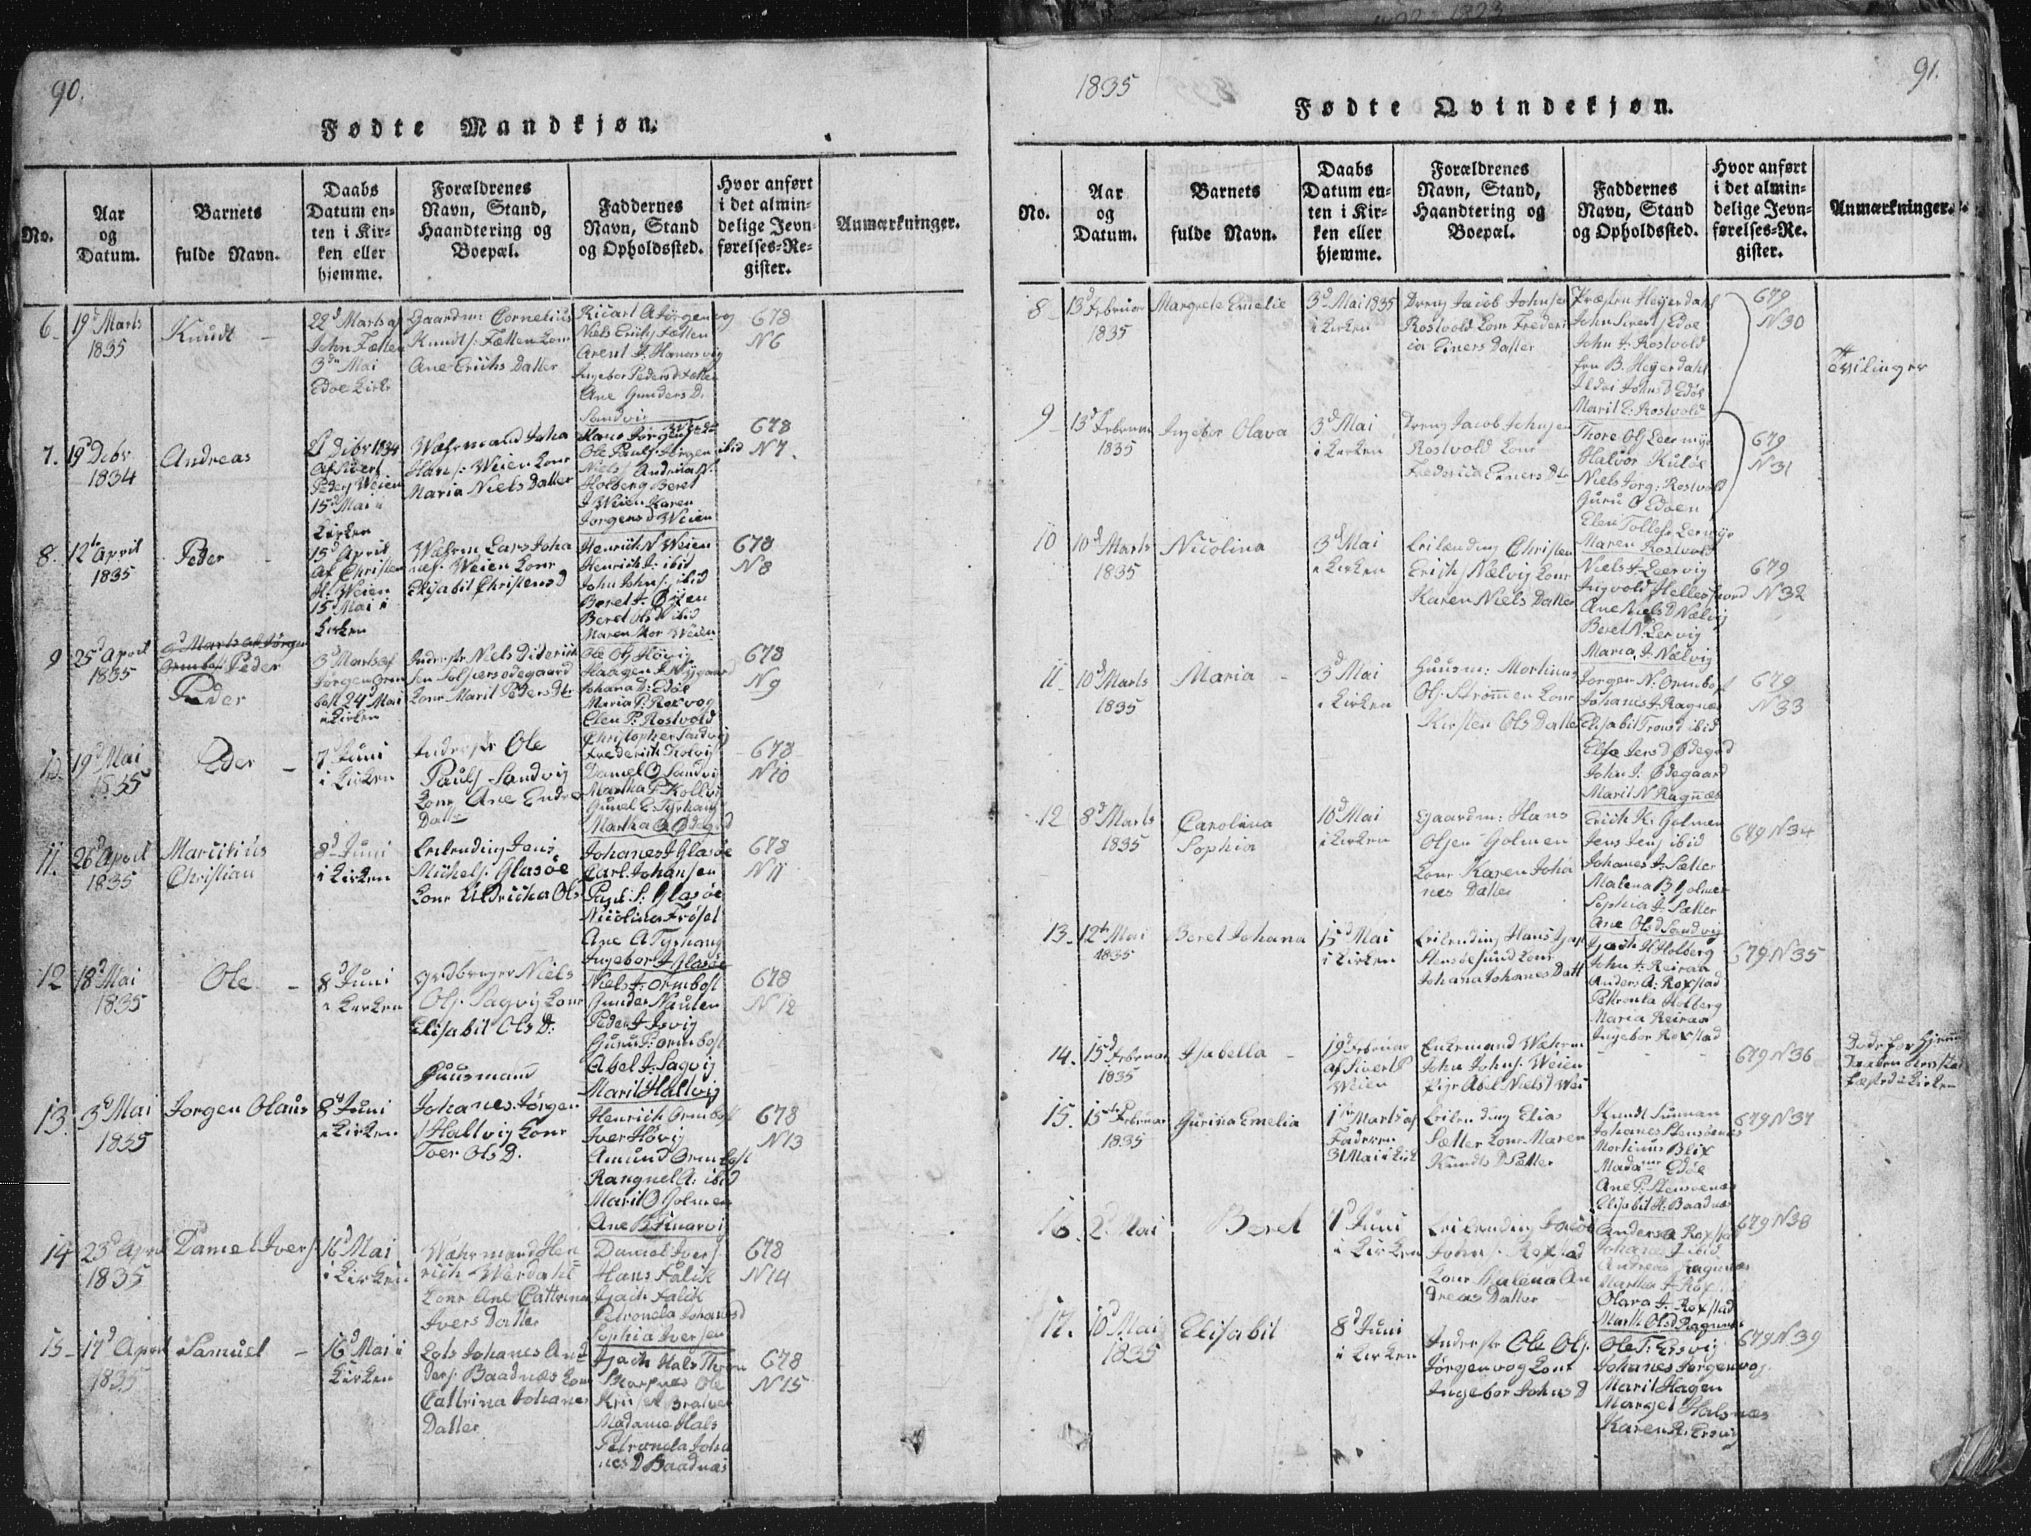 90.
Fødte Mandkjøn.
No.
Aar
og
Datum.
Barnets
fulde Navn.
Daabs
Datum en-
ten i Kir-
ken eller
hjemme.
Forældrenes
Navn, Stand,
Haandtering og
Boepæl.
Faddernes
Navn, Stand
og Opholdssted.
Hvor anført
i det almin-
delige Jevn-
førelses-Re-
gister.
Anmærkninger.
6
19d Marts
1835
Knudt
22d Marts af
John Fætten
3die Mai
Edøe Kirke
Gaardm: Cornelius
Knudts: Fætten Konr
Ane Erichs Datter
Niels Erichs Fætten
Arent J. Hanasvig
Ingebor Peders D Fætten
Ane Gunders D.
Sandvig
678
N 6
7.
19d Debr
1834
Andreas
Peders Weien
15d Mai i
Kirken
Wæhrmand Joha
Hans: Weien Konr
Maria Niels Datter
Hans Jørgens
Ole Pauls: Jørgen ibid
Niels Andreas N.
Holberg Beret
J Weien Karen
Jørgens d Weien
678
N 7.
8.
12te April
1835
Peder
15d April
Af Christen
H. Weien
15 Mai i
Kirken
Wæhrm Lars Joha
nes: Weien Konr
Elisabit Christens d
Henrich N Weien
Henrich J: ibid
John Johns: ibid
Beret J. Øien
Beret Ols N ibid
Maren Mor Weien
678
N 8
9
25d April
1835
Peder
Peder
3d Marts af
Jørgen Orm
bost 24 Mai
i Kirken
Inderstr Niels Diderich
sen Solskjærsødegaard
Konr Marit Peders Dtr
Ole Ols Høvig
Haagen J Nygaard
Johana D: Edøe
Maria P: Roxvog
Elen P: Rostvold
678
N 9
10.
19d Mai
1835
Eder
7d Juni
i Kirken
Inderstr Ole
Pauls Sandvig
Konr Ane Endre
Datter
Christopher Sandvig
Frederich Kolvig
Daniel O Sandvig
Martha P Kollvig
Gunel E: Tyrhaug
Martha O Ødegrd
678
N 10
11.
26d April
1835
Maruitius
Christian
8d Juni
i Kirken
Leilending Jens
Michels: Glasøe
Konr Uldricha Ols
Johanes J Glasøe
Carl Johansen
Paul S: Glasøe
Nicolina Frøset
Ane A Tyrhaug
Ingebor J Glasøe
678
N 11
12
18d Mai
1835
Ole
8d Juni
i Kirken
Grdbruger Niels
Ols: Sagvig Konr
Elisabit Ols D:
Niels J. Ormbost
Gunder Naulen
Peder J. Isvig
Guru P: Ormbost
Abel J. Sagvig
Marit Hallvig
678
N 12
13
3d Mai
1835
Jørgen Olaus
8d Juni
i Kirken
Huusmand
Johanes Jørgen
s Hallvig Konr
Toer Ols D.
Henrich Ormbost
Iver Høvig
Amund Ormbost
Rangnel A: ibid
Marit O Golmen
Ane B Finarvi
678
N 13
14
23d April
1835
Daniel Ivers
16d Mai
i Kirken
Wæhrmand Hen
rich Werdahl
Konr Ane Cattrina
Ivers Datter
Daniel Ivers
Hans Falik
Isach Falik
Petronela Johanes d
Sophia Iversen
678
N 14
15
17d April
1835
Samuel
16d Mai i
Kirken
Lots Johanes An
ders: Baadnæs Konr
Cattrina Johanes
Datter
Isach Hals Thorn
Ole
Madame Hals
Petronela Joha
nes D Baadnæs
678
N 15
1835
91.
Fødte Qvindekjøn.
No.
Aar
og
Datum.
Barnets
fulde Navn.
Daabs
Datum en-
ten i Kir-
ken eller
hjemme.
Forældrenes
Navn, Stand,
Haandtering og
Boepæl.
Faddernes
Navn, Stand
og Opholdssted.
Hvor anført
i det almin-
delige Jevn-
førelses-Re-
gister.
Anmærkninger.
8
13d Februar
1835
Margrete Emelie
3d Mai 1835
i Kirken
Dreng Jacob Johnsen
Rostvold Konr Frederi
cia Einers Datter
Præsten Heyerdahl
John Sivert Edøe
John J. Rostvold
fru B. Heyerdahl
Ildri Johns D Edøe
Marit E: Rostvold
679
N 30
Tvilinger
9
13d Februar
1835
Ingebor Olava
3d Mai
i Kirken
Dreng Jacob Johnsen
Rostvold Konr
Frederica Einers Dtr
Thore Ols Leervig
Halvor Kuløe
Niels Jørg: Rostvold
Guru O Edøen
Elen Tollefs Lervig
Maren Rostvold
679
N 31
10
10d Marts
1835
Nicolina
3d Mai
i Kirken
Leilending Christen
Erichs Nælvig Konr
Karen Niels Datter
Niels J. Leervig
Ingvold Hellesfiord
Ane Niels D Nælvig
Beret N: Lervig
Maria J. Nælvig
679
N 32
11
10d Marts
1835
Maria
3d Mai
i Kirken
Huusm: Mortinus
Ols: Strømmen Konr
Kirsten Ols Datter
Jørgen N: Ormbost
Johanes J. Ragnæs
Elisabit Trond ibid
Else Iers D Ødegrd
John J: Ødegaard
Marit N Ragnæs
679
N 33
12
8d Marts
1835
Carolina
Sophia
10d Mai
i Kirken
Gaardm: Hans
Olsen Golmen
Konr Karen Joha
nes Datter
Erich K: Golmen
Jens Jens ibid
Johanes J. Sætter
Malena B Golmen
Sophia J. Sætter
Ane Ols D Sandvig
679 N 34
13.
12te Mai
1835
Beret Johana
15d Mai
i Kirken
Leilending Hans Isach
Stensøesund Konr
Johana Johanes Datt
Isach H Holberg
John J. Reiraa
Anders A: Roxstad
Petronla Holberg
Maria Reiraa
Ingebor Roxstad
679 N 35
14.
15d Februar
1835
Isabella
19d Februar
af Sivert P
Weien
Enkemand Wæhrm
John Johns: Weien
Pige Abel Niels D Wei
679 N 36
Døde før hjemme
Daaben blev stad
fæsted i Kirken
15.
15de Februar
1835
Gurina Emelia
1ste Marts af
Faderen
31 Mai i Kirk
Leilending Elias
Sætter Konr Maren
Knudts D Sætter
Knudt Sunnan
Johanes Stensønæs
Mortinus Blix
Madame Edøe
Ane P: Stensønæs
Elisabit H: Baadnæs
679 N 37
16.
2d Mai
Beret
7d Juni
i Kirken
Leilending Jacob
Johns: Roxstad
Konr Malena An
dreas Datter
Anders A Roxstad
Johanes J ibid
Andreas Ragnnæs
Martha J. Rox
Olava J. Roxstad
Marth Ols D Ragnæs
679 N 38
17.
10d Mai
1835
Elisabit
8d Juni
i Kirken
Inderstr Ole Ols:
Jørgenvog Konr
Ingebor Johns D
Ole T: Ersvig
Johanes Jørgenvog
Marit Hagen
Marget Halsnæs
Karen R: Ersvig
679 N 39